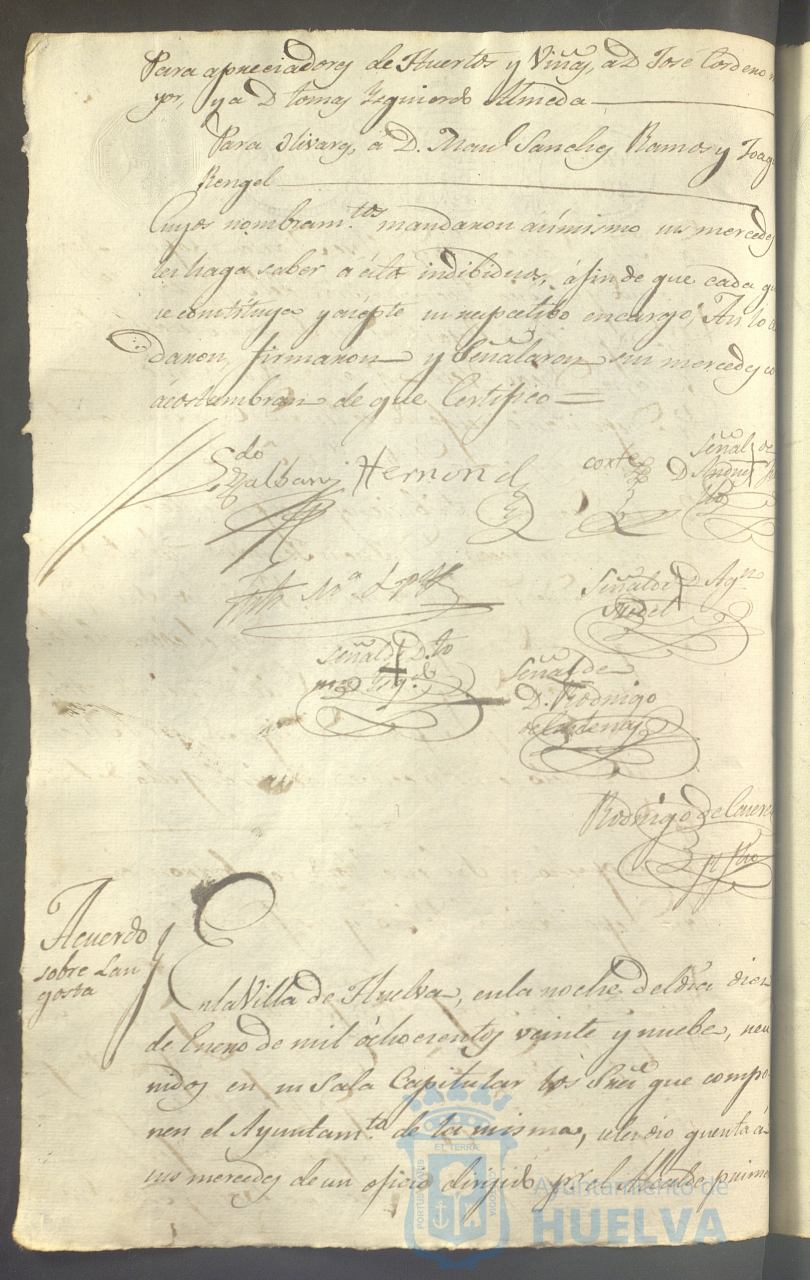 Para apreciadores de Huertos y Viñas, a D. Jose Cordero m
yor, y a D tomas Izquierdo Almeda
Para Olivarꝫ, a D. Manl Sanches Ramos y Joaq
Rengel
Cuyos nombramtos mandaron asimismo sus mercedes
les haga saber a estos indibiduos, áfin de que cada q
se constituya y acepte su respectibo encargo; Asi lo
daron, firmaron y Señalaron sus mercedes
ácostumbran de que Certifico =
Ldo
Galban Hernond
Cortes
Señal de
D Andres
Señal de D Agno
Señal de D. To
mas Izqdo
Señal de
D. Rodrigo
de Cardenas
Rodrigo de
Acuerdo
sobre Lan
gosta
En la Villa de Huelva, en la noche del dia diez
de Enero de mil ócho cientos veinte y nuebe, reu
nidos en su Sala Capitular los Sres que compo
nen el Ayuntamto de la misma, se les dio quenta á
sus mercedes de un oficio dirijido por el Alcalde prime
PORTUS MARIS
EL TERRA
Ayuntamiento de
HUELVA